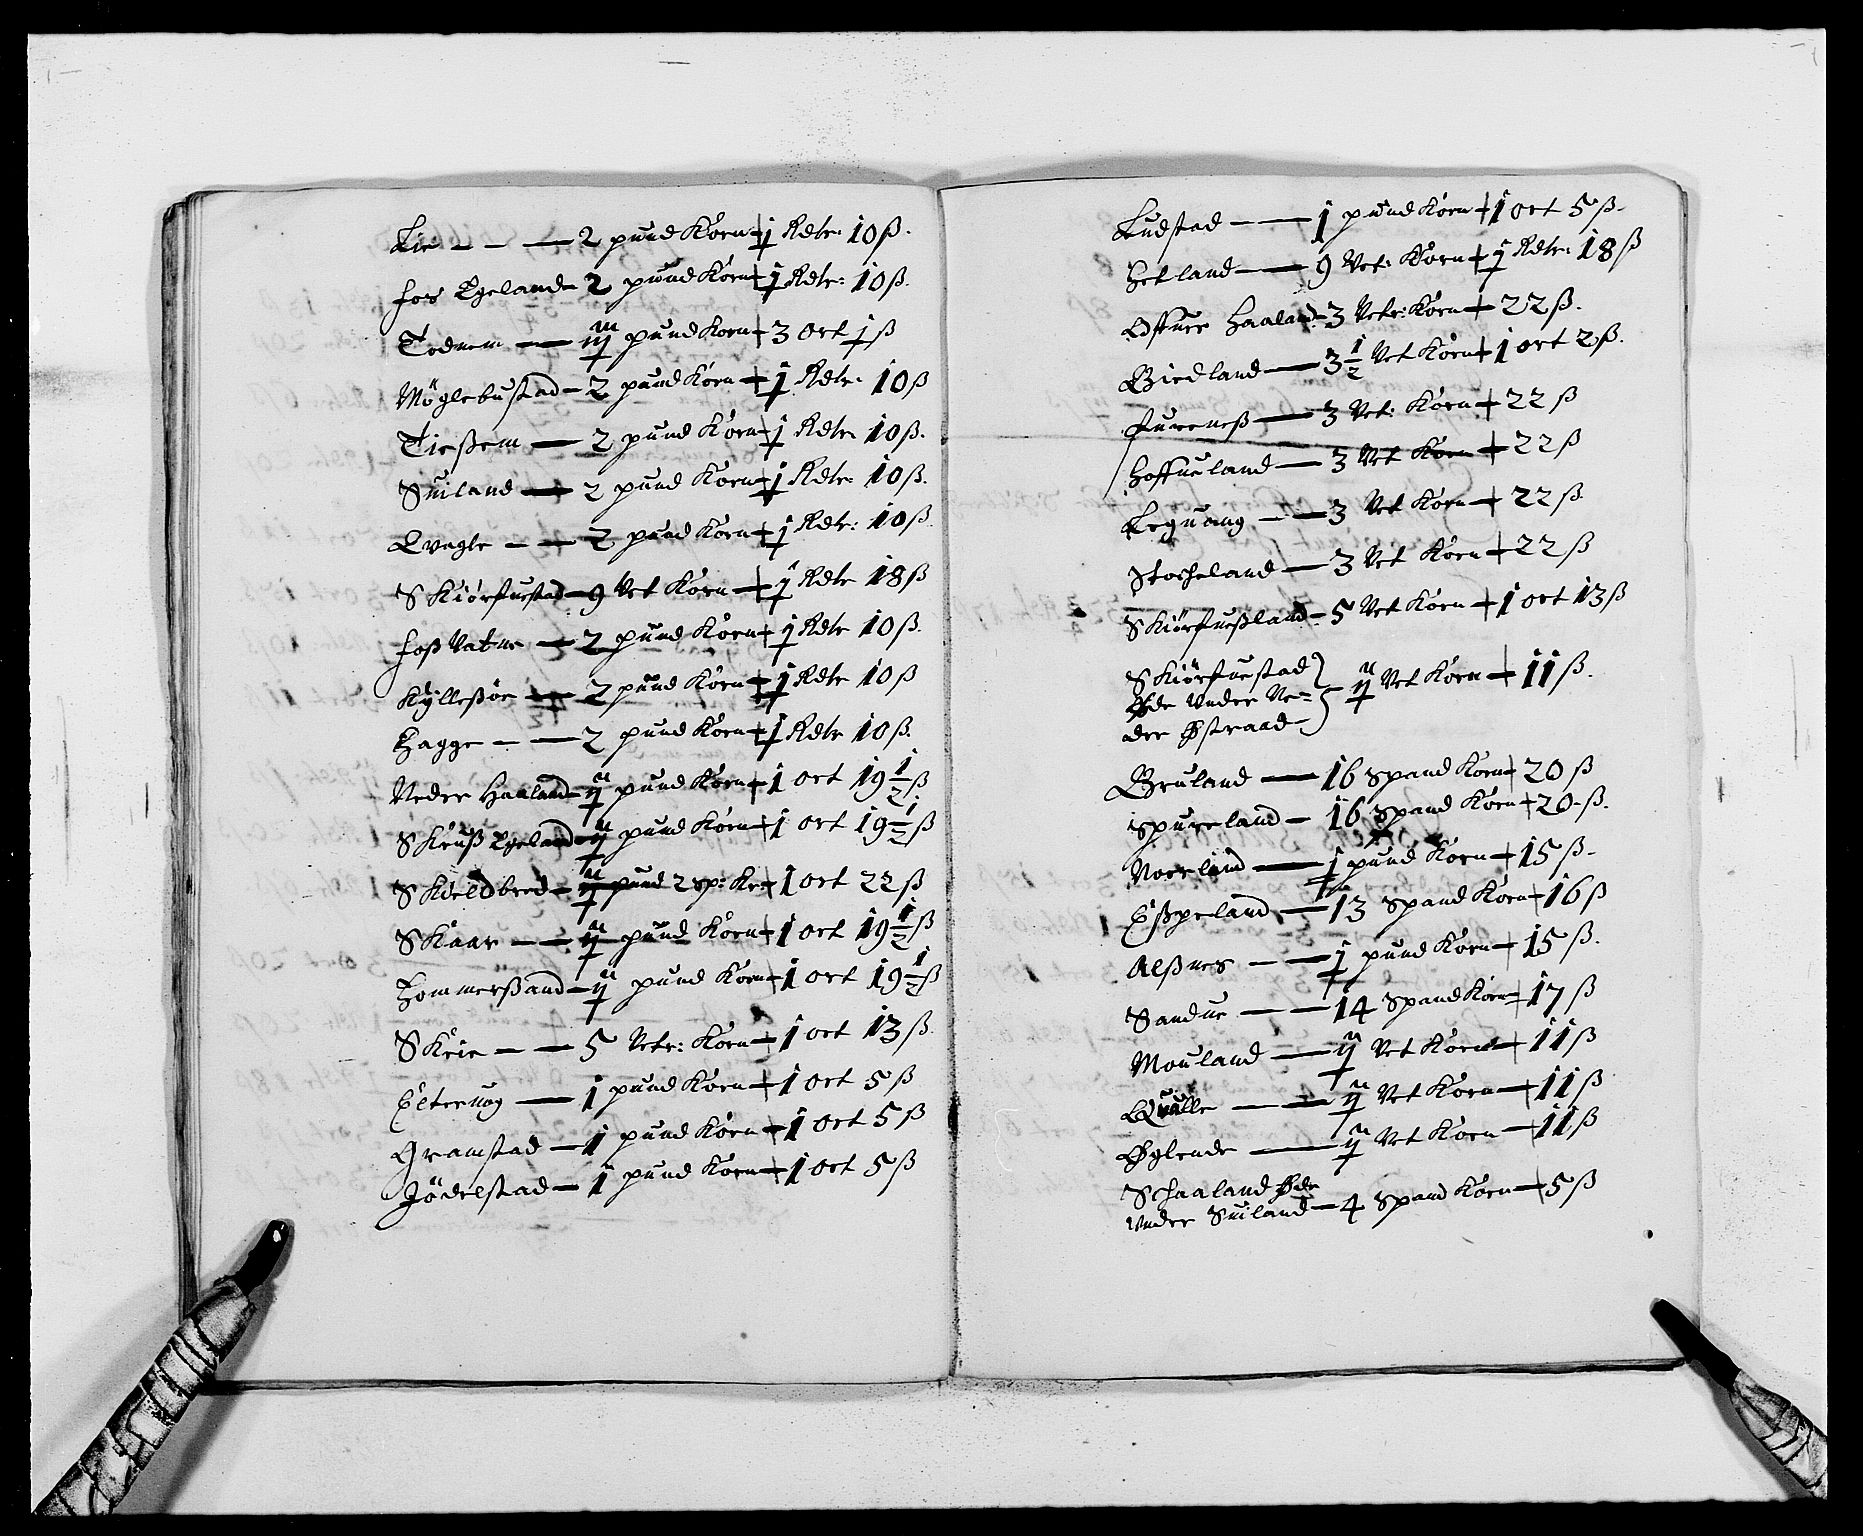 Lie - - — 2 pund Korn + 1 Rdlr: 10 ß.
fos Egeland - 2 pund Korn + 1 Rdlr: 10 ß.
Todnem — pund Korn + 3 Ort 1 ß
Möglebustad - 2 pund Korn + 1 Rdlr: 10 ß
Tießem — 2 pund Korn + 1 Rdlr. 10 ß.
Suiland — 2 pund Korn + 1 Rdlr: 10 ß.
Qvagle - — 2 pund Korn + 1 Rdlr: 10 ß.
SKiörfuestad - 9 Vet Korn + 1 Rdlr 18 ß
foß Vatne — 2 pund Korn + 1 Rdlr 10 ß.
Kylleßöe — 2 pund Korn + 1 Rdlr 10 ß
Hagge - — 2 pund Korn + 1 Rdlr 10 ß.
Neder Haaland - ij pund Korn + 1 ort 19 1/2 ß
SKeuß Egeland - ij pund Korn + 1 ort 19 1/2 ß
SKieldbred - ij pund 2 sp: Kr + 1 ort 22 ß
SKaar - — ij pund Korn + 1 ort 19 1/2 ß
Hommerßand - ij pund Korn + 1 ort 19 1/2 ß
SKeie - — 5 Vetr: Korn + 1 ort 13 ß.
Elteruog — 1 pund Korn + 1 ort 5 ß
Gramstad — 1 pund Korn + 1 ort 5 ß
Jödelstad — 1 pund Korn + 1 ort 5 ß
Ludstad - — 1 pund Korn + 1 ort 5 ß.
Hetland — 9 Vet: Korn + 1 Rdlr: 18 ß
Øfuer Haaland - 3 Vetr: Korn + 22 ß.
Birdland — 3 1/2 Vet Korn + 1 ort 2 ß.
fureneß — 3 Vet: Korn + 22 ß
Hoffueland — 3 Vet Korn + 22 ß
Leguang - — 3 Vet Korn + 22 ß
Stocheland — 3 Vet Korn + 22 ß
SKiörfueßland - 5 Vet Korn + 1 ort 13 ß
SKiörfuestad
Øde Under Ne= ij Vet Korn + 11 ß.
der Østraad -
Bruland — 16 Spand Korn + 20 ß
Spureland - 16 Spand Korn + 20 ß.
Noerland — 1 pund Korn + 15 ß.
Eßpeland — 13 Spand Korn + 16 ß
Alßnes - — 1 pund Korn + 15 ß.
Sandue - — 14 Spand Korn + 17 ß
Mouland — ij Vet Korn + 11 ß
Qualle — ij Vet Korn + 11 ß
Øglende — ij Vet Korn + 11 ß
Schaaland Øde
Under Suiland — 4 Spand Korn + 5 ß